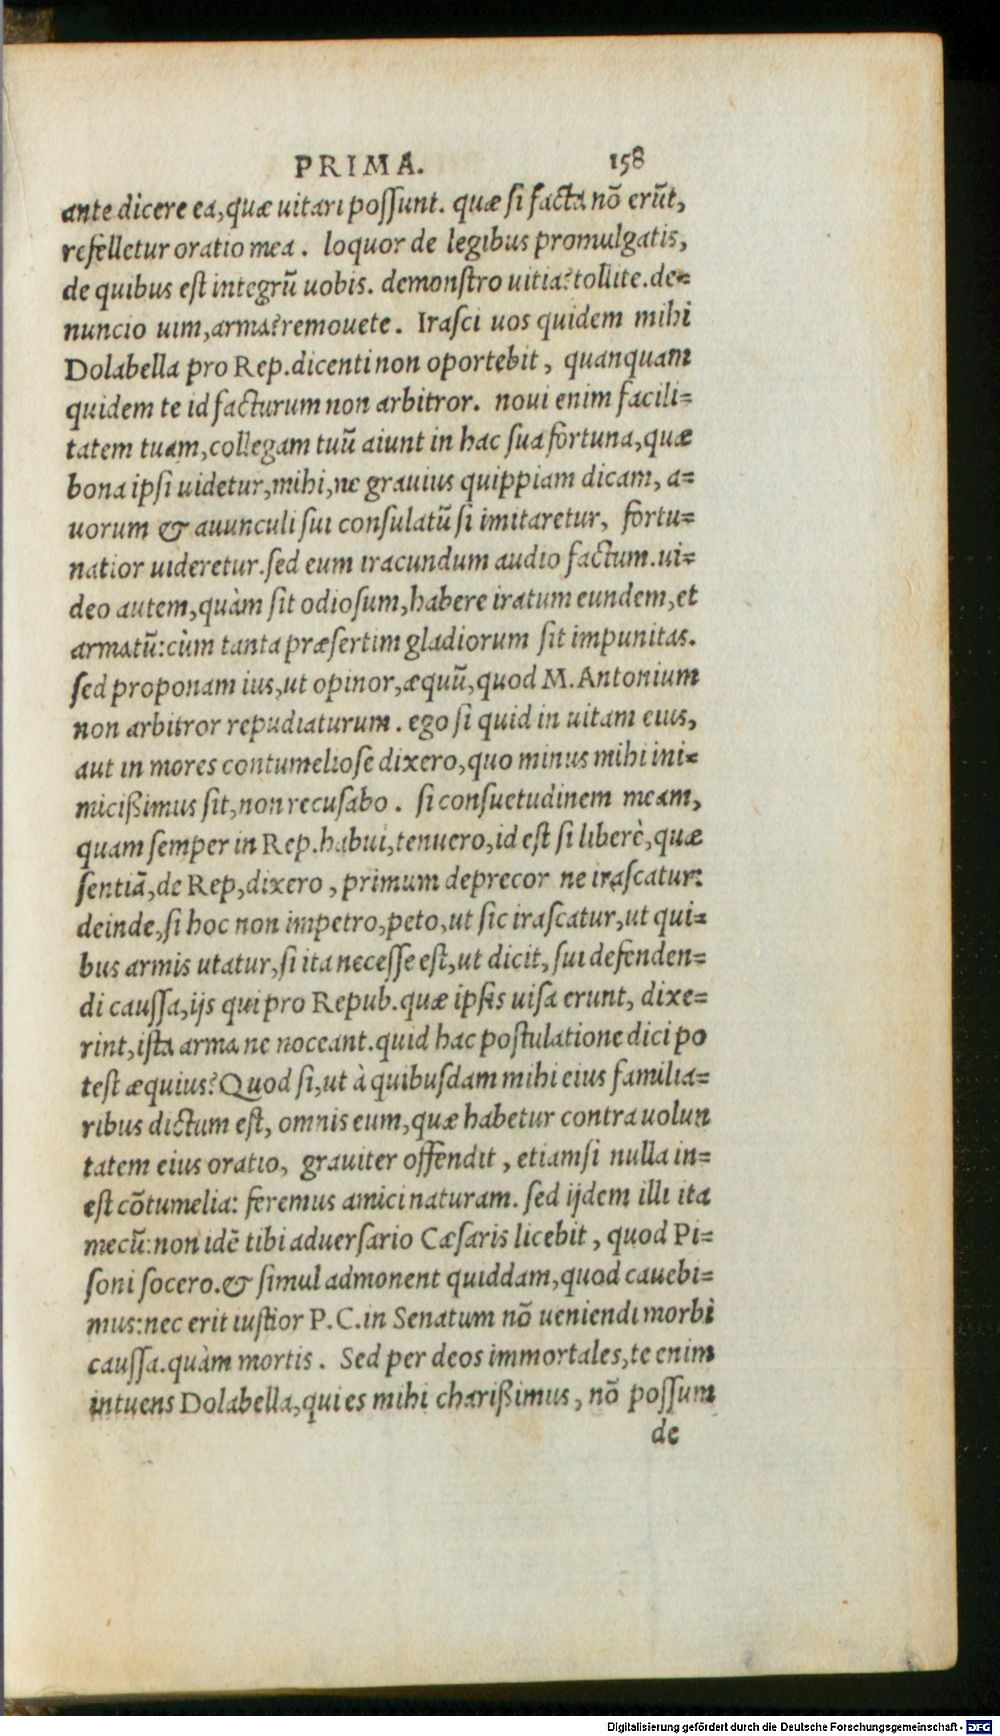 PRIMA. 158
ante dicere ea, quæ uitari possunt. quæ si facta nō erūt,
refelletur oratio mea. loquor de legibus promulgatis,
de quibus est integrū uobis. demonstro uitia? tollite. de=
nuncio uim, arma? remouete. Irasci uos quidem mihi
Dolabella pro Rep. dicenti non oportebit, quanquam
quidem te id facturum non arbitror. noui enim facili=
tatem tuam, collegam tuū aiunt in hac sua fortuna, quæ
bona ipsi uidetur, mihi, ne grauius quippiam dicam, a=
uorum & auunculi sui consulatū si imitaretur, fortu=
natior uideretur. sed eum iracundum audio factum. ui=
deo autem, quàm sit odiosum, habere iratum eundem, et
armatū: cùm tanta præsertim gladiorum sit impunitas.
sed proponam ius, ut opinor, æquū, quod M. Antonium
non arbitror repudiaturum. ego si quid in uitam eius,
aut in mores contumeliose dixero, quo minus mihi ini=
micißimus sit, non recusabo. si consuetudinem meam,
quam semper in Rep. habui, tenuero, id est si liberè, quæ
sentiā, de Rep, dixero, primum deprecor ne irascatur:
deinde, si hoc non impetro, peto, ut sic irascatur, ut qui=
bus armis utatur, si ita necesse est, ut dicit, sui defenden=
di caussa, ijs qui pro Repub. quæ ipsis uisa erunt, dixe=
rint, ista arma ne noceant. quid hac postulatione dici po
test æquius? Quod si, ut à quibusdam mihi eius familia=
ribus dictum est, omnis eum, quæ habetur contra uolun
tatem eius oratio, grauiter offendit, etiamsi nulla in=
est cōtumelia: feremus amici naturam. sed ijdem illi ita
mecū: non idē tibi aduersario Cæsaris licebit, quod Pi=
soni socero. & simul admonent quiddam, quod cauebi=
mus: nec erit iustior P. C. in Senatum nō ueniendi morbi
caussa. quàm mortis. Sed per deos immortales, te enim
intuens Dolabella, qui es mihi charißimus, nō possum
de
Digitalisierung gefördert durch die Deutsche Forschungsgemeinschaft - DFG